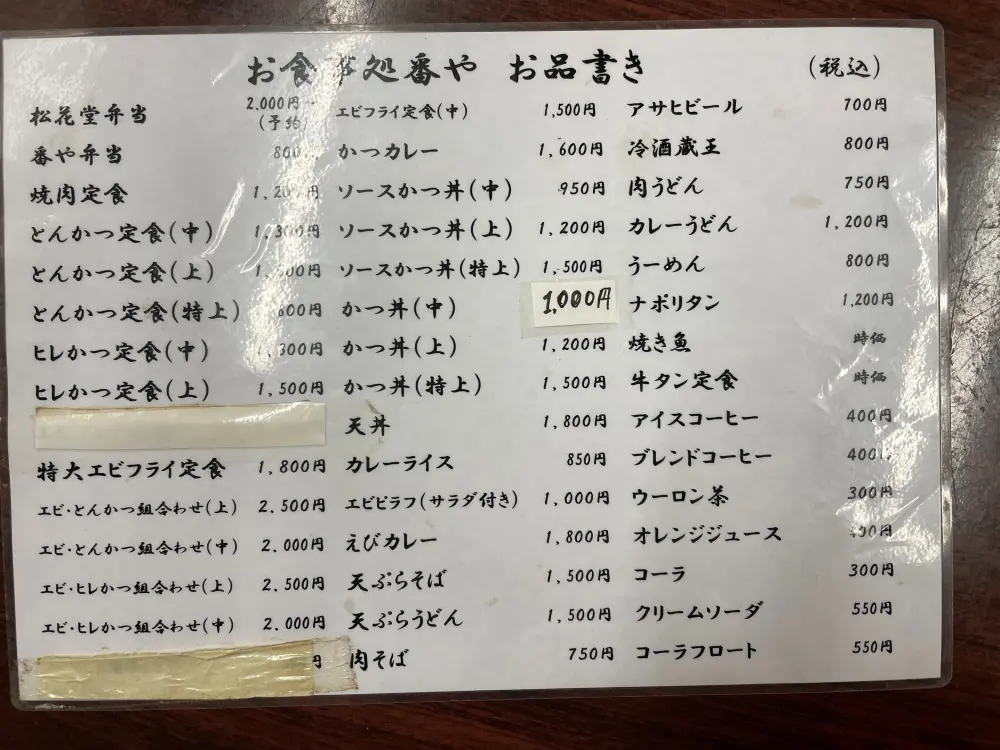 お食事処番や お品書き (税込)
松花堂弁当 2,000円~
(予約)
番や弁当 800
焼肉定食 1,20 円
とんかつ定食(中) 1,300円
とんかつ定食(上) 1, 00円
とんかつ定食(特上) 800円
ヒレかつ定食(中) ,300円
ヒレかつ定食(上) 1,500円
特大エビフライ定食 1,800円
エビ・とんかつ組合わせ(上) 2.500円
エビ・とんかつ組合わせ(中) 2.000円
エビ・ヒレかつ組合わせ(上) 2.500円
エビ・ヒレかつ組合わせ(中) 2.000円
円
エビフライ定食(中) 1,500円
かつカレー 1,600円
ソースかつ丼(中) 950円
ソースかつ丼(上) 1,200円
ソースかつ丼(特上) 1,500円
かつ丼(中) 1,000円
かつ丼(上) 1,200円
かつ丼(特上) 1,500円
天丼 1,800円
カレーライス 850円
エビピラフ(サラダ付き) 1,000円
えびカレー 1,800円
天ぷらそば 1,500円
天ぷらうどん 1,500円
肉そば 750円
アサヒビール 700円
冷酒蔵王 800円
肉うどん 750円
カレーうどん 1,200円
うーめん 800円
ナポリタン 1,200円
焼き魚 時価
牛タン定食 時価
アイスコーヒー 400円
ブレンドコーヒー 400円
ウーロン茶 300円
オレンジジュース 400円
コーラ 300円
クリームソーダ 550円
コーラフロート 550円